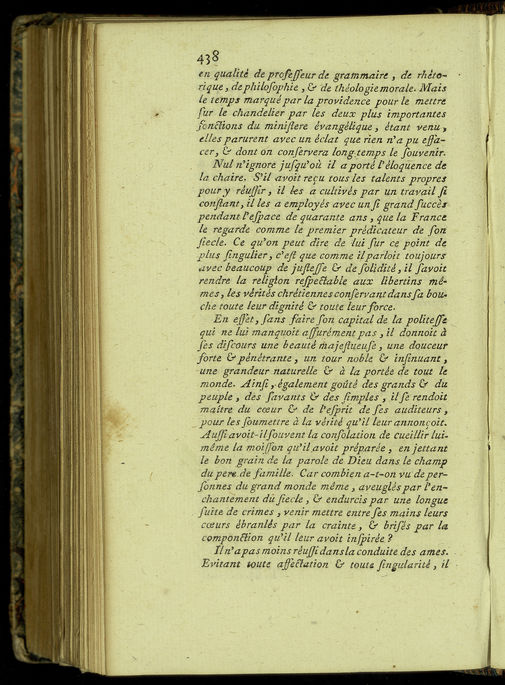 438
en qualité de professeur de grammaire, de rhéto-
rique, de philosophie, & de théologie morale. Mais
le temps marqué par la providence pour le mettre
sur le chandelier par les deux plus importantes
fonctions du ministere évangélique, étant venu,
elles parurent avec un éclat que rien n'a pu effa-
cer, & dont on conservera long-temps le souvenir.
Nul n'ignore jusqu'où il a porté l'éloquence de
la chaire. S'il avoit reçu tous les talents propres
pour y réussir, il les a cultivés par un travail si
constant, il les a employés avec un si grand succès
pendant l'espace de quarante ans, que la France
le regarde comme le premier prédicateur de son
siecle. Ce qu'on peut dire de lui sur ce point de
plus singulier, c'est que comme il parloit toujours
avec beaucoup de justesse & de solidité, il savoit
rendre la religion respectable aux libertins mê-
mes, les vérités chrétiennes conservant dans sa bou-
che toute leur dignité & toute leur force.
En effet, sans faire son capital de la politesse
qui ne lui manquoit assurément pas, il donnoit à
ses discours une beauté majestueuse, une douceur
forte & pénétrante, un tour noble & insinuant,
une grandeur naturelle & à la portée de tout le
monde. Ainsi, également goûté des grands & du
peuple, des savants & des simples, il se rendoit
maître du cœur & de l'esprit de ses auditeurs,
pour les soumettre à la vérité qu'il leur annonçoit.
Aussi avoit-il souvent la consolation de cueillir lui-
même la moisson qu'il avoit préparée, en jettant
le bon grain de la parole de Dieu dans le champ
du pere de famille. Car combien a-t-on vu de per-
sonnes du grand monde même, aveuglés par l'en-
chantement du siecle, & endurcis par une longue
suite de crimes, venir mettre entre ses mains leurs
cœurs ébranlés par la crainte, & brisés par la
componction qu'il leur avoit inspirée?
Il n'a pas moins réussi dans la conduite des ames.
Evitant toute affectation & toute singularité, il